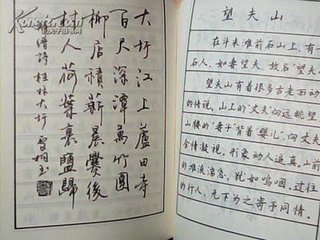 大圩江上蘆田寺
百尺深潭萬竹圍
柳店積薪晨爨後
人荷葉裹鹽歸
解缙诗 桂林大圩
望夫山
在斗米滩前石山上,有一
石人,如妻望夫,故名"望夫
望夫山有着很多古老而动
的传说,山上的"丈夫"向远眺望
山腰的"妻子"背着"婴儿",向丈夫
情叙说,形象动人逼真,山前
的滩流湍急,犹如呜咽,过往
的行人,无不为之寄予同情。